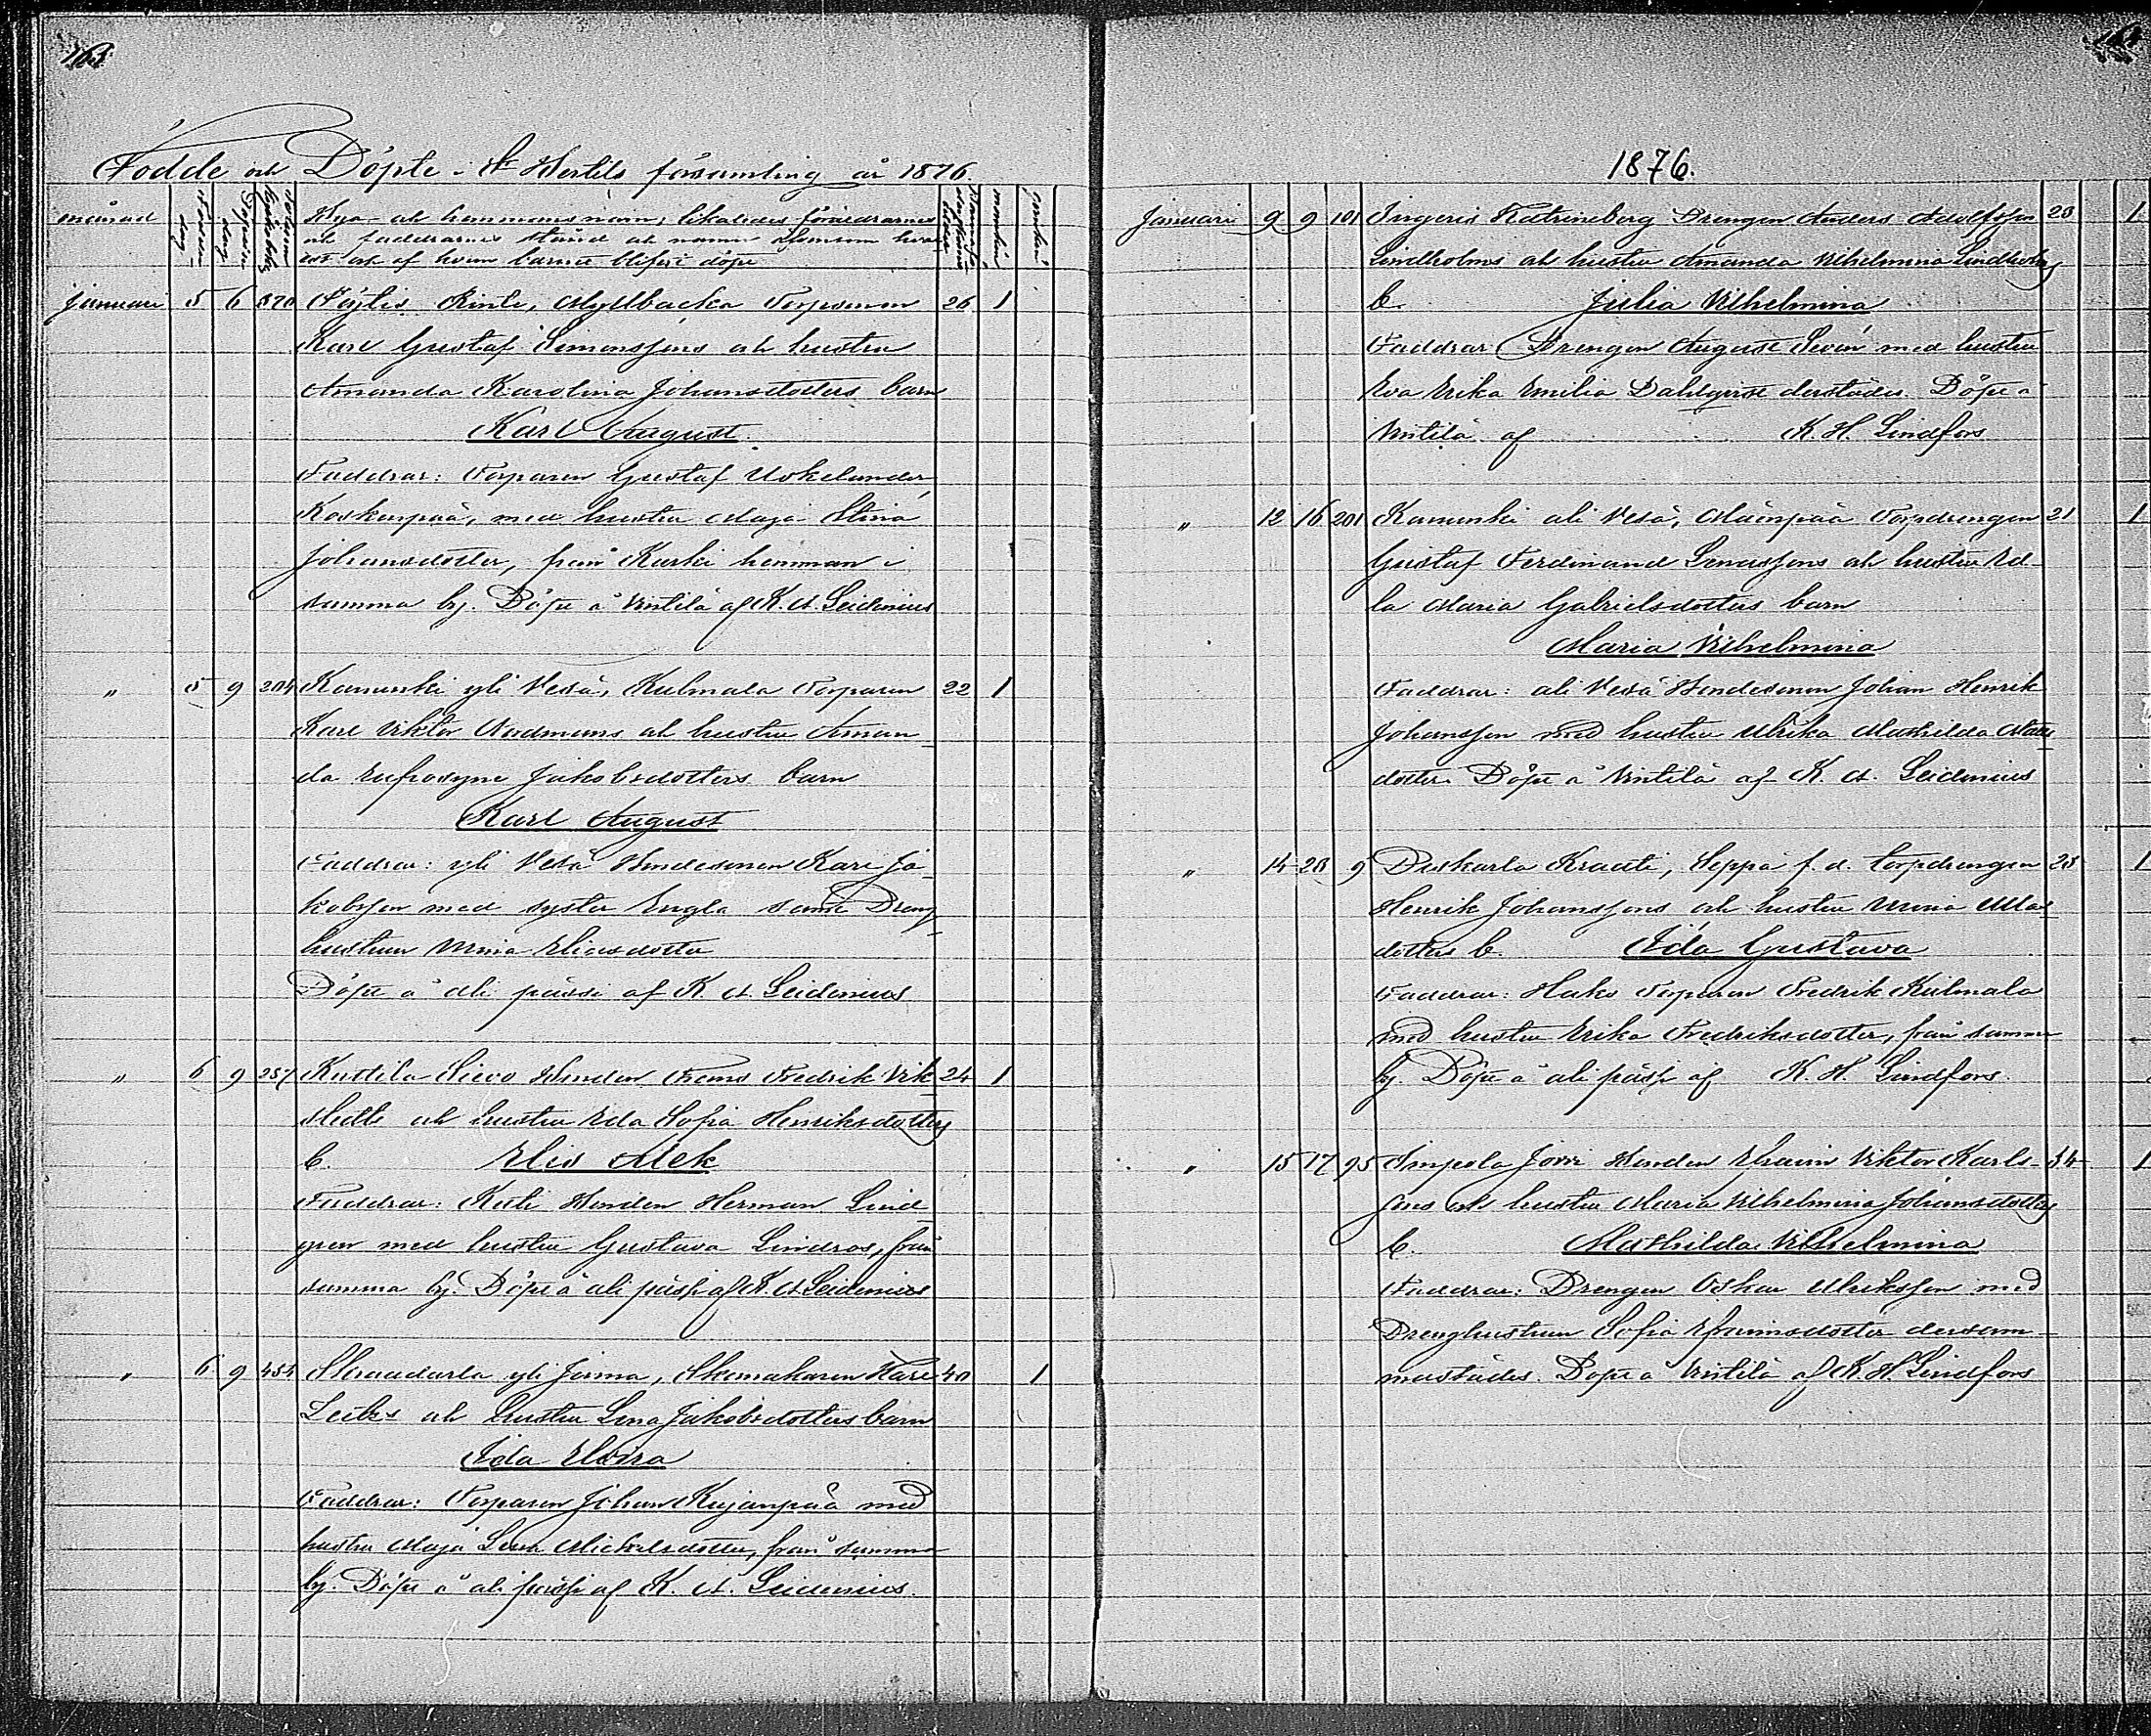 Födde och Döpte i St Bertils församling år 1876.
månad
By- och hemmansnamn, likaledes föräldrarnes
och faddrarnes stånd och namn
och af hvem barnet blifvit döpt
januari 5 6 370 Pöytiö Rinte, Myllbacka Torpsonen 26 1
Karl Gustaf Simonssons och hustru
Amanda Karolina Johansdotters barn
Karl August
Faddrar: Torparen Gustaf
Koskenpää, med hustru Maja Stina
Johansdotter, från Kurki hemman i
samma by. Döpt å Vintilä af K. A. Leidenius
" 5 9 204 Kanunki yli Vesä, Kulmala Torparen 22 1
Karl Viktor Nordmans och hustru Aman
da Eufrosyne Jakobsdotters barn
Karl August
Faddrar: yli Vesä Bondesonen Karl Ja
kobsson med syster Engla samt Dreng
hustrun Miina Eliasdotter
Döpt å ali pässi af K. A. Leidenius
" 6 9 257 Kuttila Sievo Bonden Frans Fredrik Vik 24 1
stedts och hustru Eda Sofia Henriksdotters
b. Elis Alek
Faddrar: Kuli Bonden Herman Lind
gren med hustru Gustava Lindros, från
samma by. Döpt å ali pässi af K. A. Leidenius
" 6 9 454 Skraadarla yli Jaima, Skomakaren Karl 40 1
Leibs och hustru Lena Jakobsdotters barn
Ida Elvira
Faddrar: Torparen Johan Kujanpää med
hustru Maja Lena Mickelsdotter, från samma
by. Döpt å ali pässi af K. A. Leidenius.
1876.
Januari 9 9 101 Ingeris Katrineberg Drengen Anders Adolfsson 28 1
Lindholms och hustru Amanda Vilhelmina Lindholms
b. Julia Vilhelmina
Faddrar: Drengen August Sevón med hustru
Eva Erika Emilia Dahlqvist derstädes. Döpt å
Vintilä af K. H. Lindfors
" 12 16 201 Kanunki ali Vesä, Mäenpää Torpdrengen 21 1
Gustaf Ferdinand Linussons och hustru Ed-
la Maria Gabrielsdotters barn
Maria Vilhelmina
Faddrar: ali Vesä Bondesonen Johan Henrik
Johansson med hustru Ulrika Mathilda Mats
dotter. Döpt å Vintilä af K. A. Leidenius
" 14 28 9 Puskarla Krauti, Seppä f. d. torpdrengen 28 1
Henrik Johanssons och hustru
dotters b. Ida Gustava
Faddrar: Haks Torparen Fredrik Kulmala
med hustru Erika Fredriksdotter, från samma
by. Döpt å ali pässi af K. H. Lindfors.
" 15 17 95 Impola Jovri Bonden Efraim Viktor Karls- 34 1
sons och hustru Maria Vilhelmina Johansdotters
b. Mathilda Vilhelmina
Faddrar: Drengen Oskar Ulriksson med
Drenghustrun Sofia Efraimsdotter dersam-
mastädes. Döpt å Vintilä af K. H. Lindfors